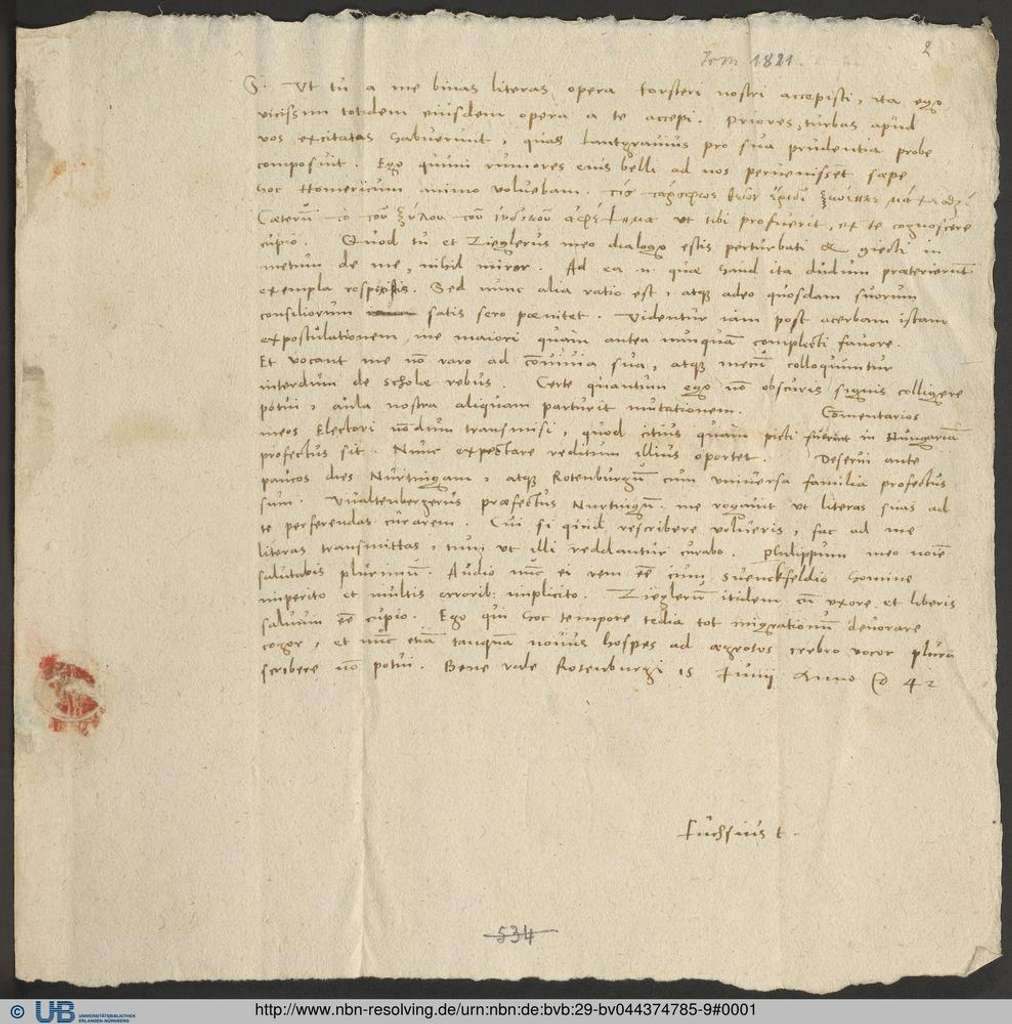 2
1821.
S. Ut tu a me binas literas opera forsteri nostri accepisti, ita ego
vicissim totidem eiusdem opera a te accepi. Priores, turbas apud
vos excitatas habuerunt, quas Lantgravius pro sua prudentia probe
composuit. Ego quum rumores eius belli ad nos pervenissẽt sæpe
hoc Homericum animo volvebam.
Cæterũ τὸ τοῦ ξύλου τοῦ ἰνδικοῦ ut tibi profuerit, ex te cognoscere
cupio. Quod tu et Zieglerus meo dialogo estis perturbati & giecti in
metum de me, nihil miror. Ad ea n. quæ haud ita dudum præterierũt
exempla respexistis. Sed nunc alia ratio est, atq; adeo quosdam suorum
consiliorum satis sero pœnitet. Videntur iam post acerbam istam
expostulationem, me maiori quam antea nunquã complecti favore.
Et vocant me nõ raro ad cõnvivia sua, atque mecũ colloquuntur
interdum de scholæ rebus. Certe quantum ego nõ obscuris signis colligere
potui, aula nostra aliquam parturit mutationem. Cõmentarios
meos Electori nõdum transmisi, quod citius quàm picti fuerint in Nungariã
profectus sit. Nunc expectare reditum illius oportet. Deserui ante
paucos dies Nurtingam, atque Rotenburgũ cum universa familia profectus
sum. Vualtenbergerus præfectus Nurtingñ. me rogavit ut literas suas ad
te perferendas curarem. Cui si quid rescribere volueris, fac ad me
literas transmittas, tum ut illi reddantur curabo. Philippum meo noĩe
salutabis plurimũ. Audio nũc ei rem eẽ cum Suenckfeldio homine
imperito et multis errorib. implicito. Zieglerũ itidem cũ uxore et liberis
salvum eẽ cupio. Ego qui hoc tempore tedia tot migrationum devorare
cogor, et nũc etiã tanquam novus hospes ad ægrotos crebro vocor plura
scribere nõ potui. Bene vale Rotenburgi 15 Iunij Anno 42
Fuchsius t.
534
© UB UNIVERSITÄTSBIBLIOTHEK
ERLANGEN-NÜRNBERG
http://www.nbn-resolving.de/urn:nbn:de:bvb:29-bv044374785-9#0001